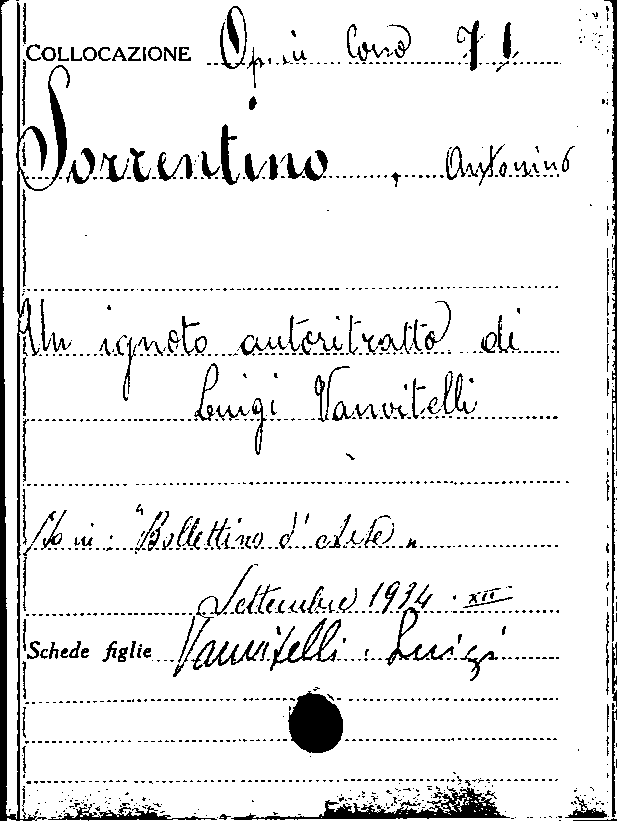 COLLOCAZIONE Op. in Corso 71
Sorrentino, Antonino
Un ignoto autoritratto di
Luigi Vanvitelli
Sta in: "Bollettino d'Arte"
Settembre 1934 - XII
Schede figlie Vanvitelli, Luigi